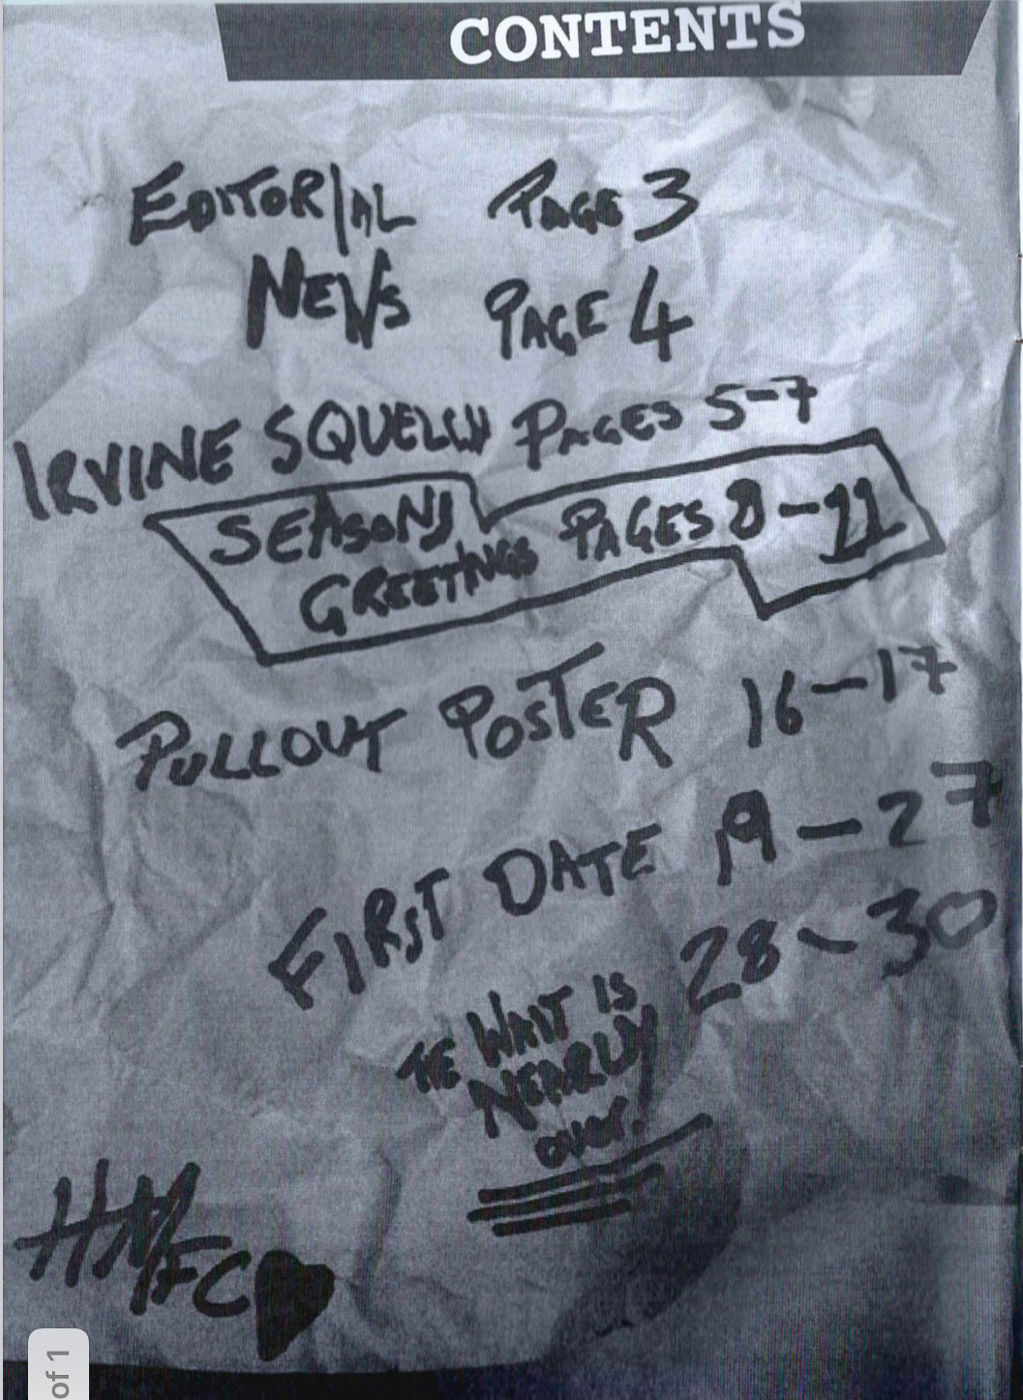 CONTENTS
EDITORIAL PAGE 3
NEWS PAGE 4
IRVINE SQUELCH PAGES 5-7
SEASONS
GREETINGS PAGES 8-11
PULLOUT POSTER 16-17
FIRST DATE 19-27
28-30
THE WAIT IS
NEARLY
over.
HMFC
of 1